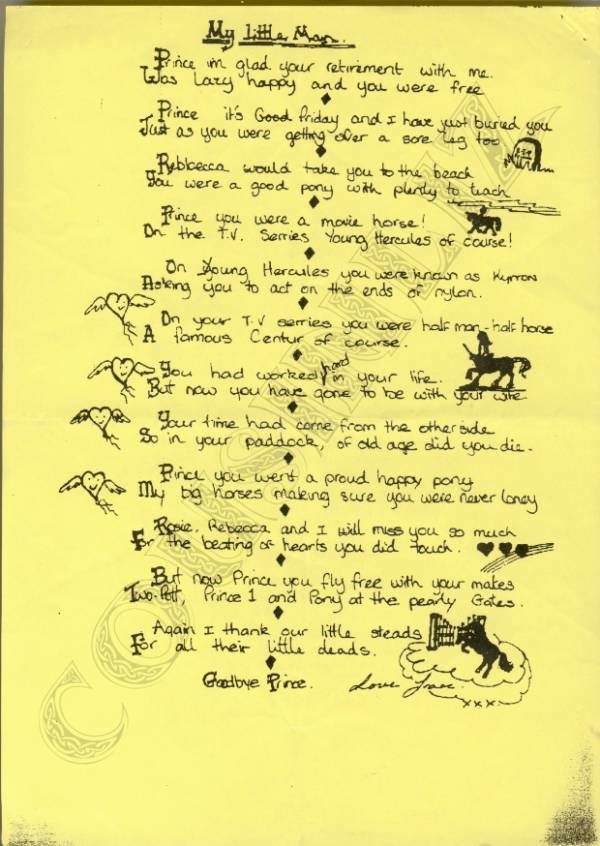 My little Man.
Prince im glad your retirement with me.
Was Lazy happy and you were free
Prince it's Good friday and I have just buried you
Just as you were getting over a sore leg too
Rebbcecca would take you to the beach
You were a good pony with plenty to teach
Prince you were a movie horse!
On the T.V. Serries Young Hercules of course!
On Young Hercules you were known as Kyrron
Asking you to act on the ends of nylon.
On your T.V serries you were half man-half horse
A famous Centur of course.
You had worked hard in your life.
But now you have gone to be with your wife
Your time had come from the otherside
So in your paddock, of old age did you die.
Prince you went a proud happy pony
My big horses making sure you were never loney
Rosie, Rebecca and I will miss you so much
For the beating of hearts you did touch.
But now Prince you fly free with your mates
Two-Pott, Prince 1 and Pony at the pearly Gates.
Again I thank our little steads
For all their little deads.
Goodbye Prince. Love
xxx